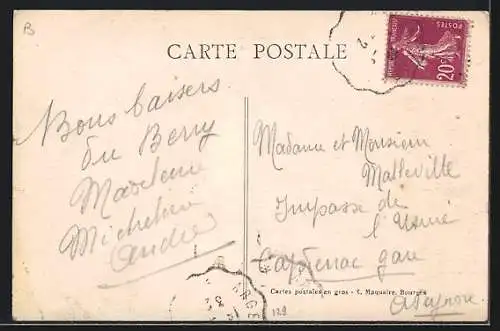 B
CARTE POSTALE
POSTES
20c
Bons baisers
du Berry
Madeleine
Micheline
André
Madame et Monsieur
Malleville
Impasse de
l'Usine
Capdenac gare
Cartes postales en gros - E. Maquaire, Bourges
Aveyron
129